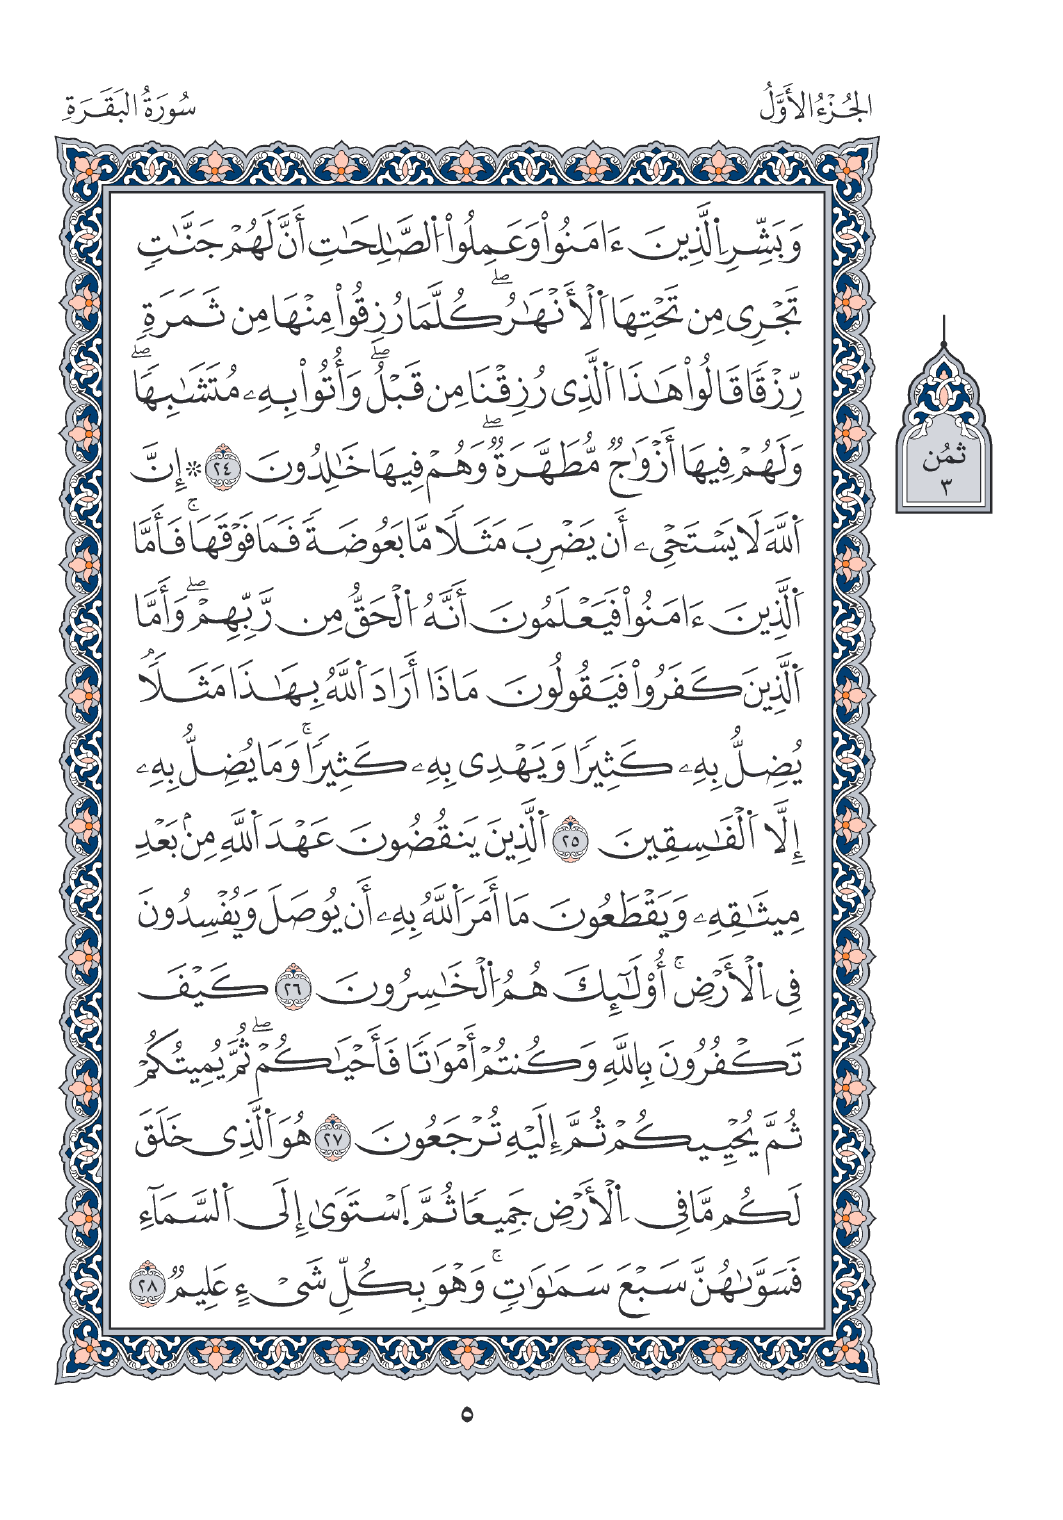 الجُزْءُ الأَوَّلُ
سُورَةُ البَقَرَةِ
وَبَشِّرِ اِ۬لذِينَ ءَامَنُواْ وَعَمِلُواْ اُ۬لصَّٰلِحَٰتِ أَنَّ لَهُمْ جَنَّٰتٖ
تَجْرِے مِن تَحْتِهَا اَ۬لْأَنْهَٰرُۖ كُلَّمَا رُزِقُواْ مِنْهَا مِن ثَمَرَةٖ
رِّزْقاٗ قَالُواْ هَٰذَا اَ۬لَّذِي رُزِقْنَا مِن قَبْلُۖ وَأُتُواْ بِهِۦ مُتَشَٰبِهاٗۖ
وَلَهُمْ فِيهَا أَزْوَٰجٞ مُّطَهَّرَةٞۖ وَهُمْ فِيهَا خَٰلِدُونَ ٢٤ ۞ إِنَّ
اَ۬للَّهَ لَا يَسْتَحْيِۦ أَن يَضْرِبَ مَثَلاٗ مَّا بَعُوضَةٗ فَمَا فَوْقَهَاۚ فَأَمَّا
اَ۬لَّذِينَ ءَامَنُواْ فَيَعْلَمُونَ أَنَّهُ اُ۬لْحَقُّ مِن رَّبِّهِمْۖ وَأَمَّا
اَ۬لَّذِينَ كَفَرُواْ فَيَقُولُونَ مَاذَا أَرَادَ اَ۬للَّهُ بِهَٰذَا مَثَلاٗۘ
يُضِلُّ بِهِۦ كَثِيراٗ وَيَهْدِي بِهِۦ كَثِيراٗۚ وَمَا يُضِلُّ بِهِۦ
إِلَّا اَ۬لْفَٰسِقِينَ ٢٥ اَ۬لَّذِينَ يَنقُضُونَ عَهْدَ اَ۬للَّهِ مِنۢ بَعْدِ
مِيثَٰقِهِۦ وَيَقْطَعُونَ مَا أَمَرَ اَ۬للَّهُ بِهِۦ أَن يُوصَلَ وَيُفْسِدُونَ
فِي اِ۬لْأَرْضِۚ أُوْلَٰٓئِكَ هُمُ اُ۬لْخَٰسِرُونَ ٢٦ كَيْفَ
تَكْفُرُونَ بِاللَّهِ وَكُنتُمْ أَمْوَٰتاٗ فَأَحْيَٰكُمْۖ ثُمَّ يُمِيتُكُمْ
ثُمَّ يُحْيِيكُمْ ثُمَّ إِلَيْهِ تُرْجَعُونَ ٢٧ هُوَ اَ۬لَّذِي خَلَقَ
لَكُم مَّا فِي اِ۬لْأَرْضِ جَمِيعاٗ ثُمَّ اَ۪سْتَوَىٰ إِلَى اَ۬لسَّمَآءِ
فَسَوَّىٰهُنَّ سَبْعَ سَمَٰوَٰتٖۚ وَهْوَ بِكُلِّ شَيْءٍ عَلِيمٞ ٢٨
ثمُن
٣
٥